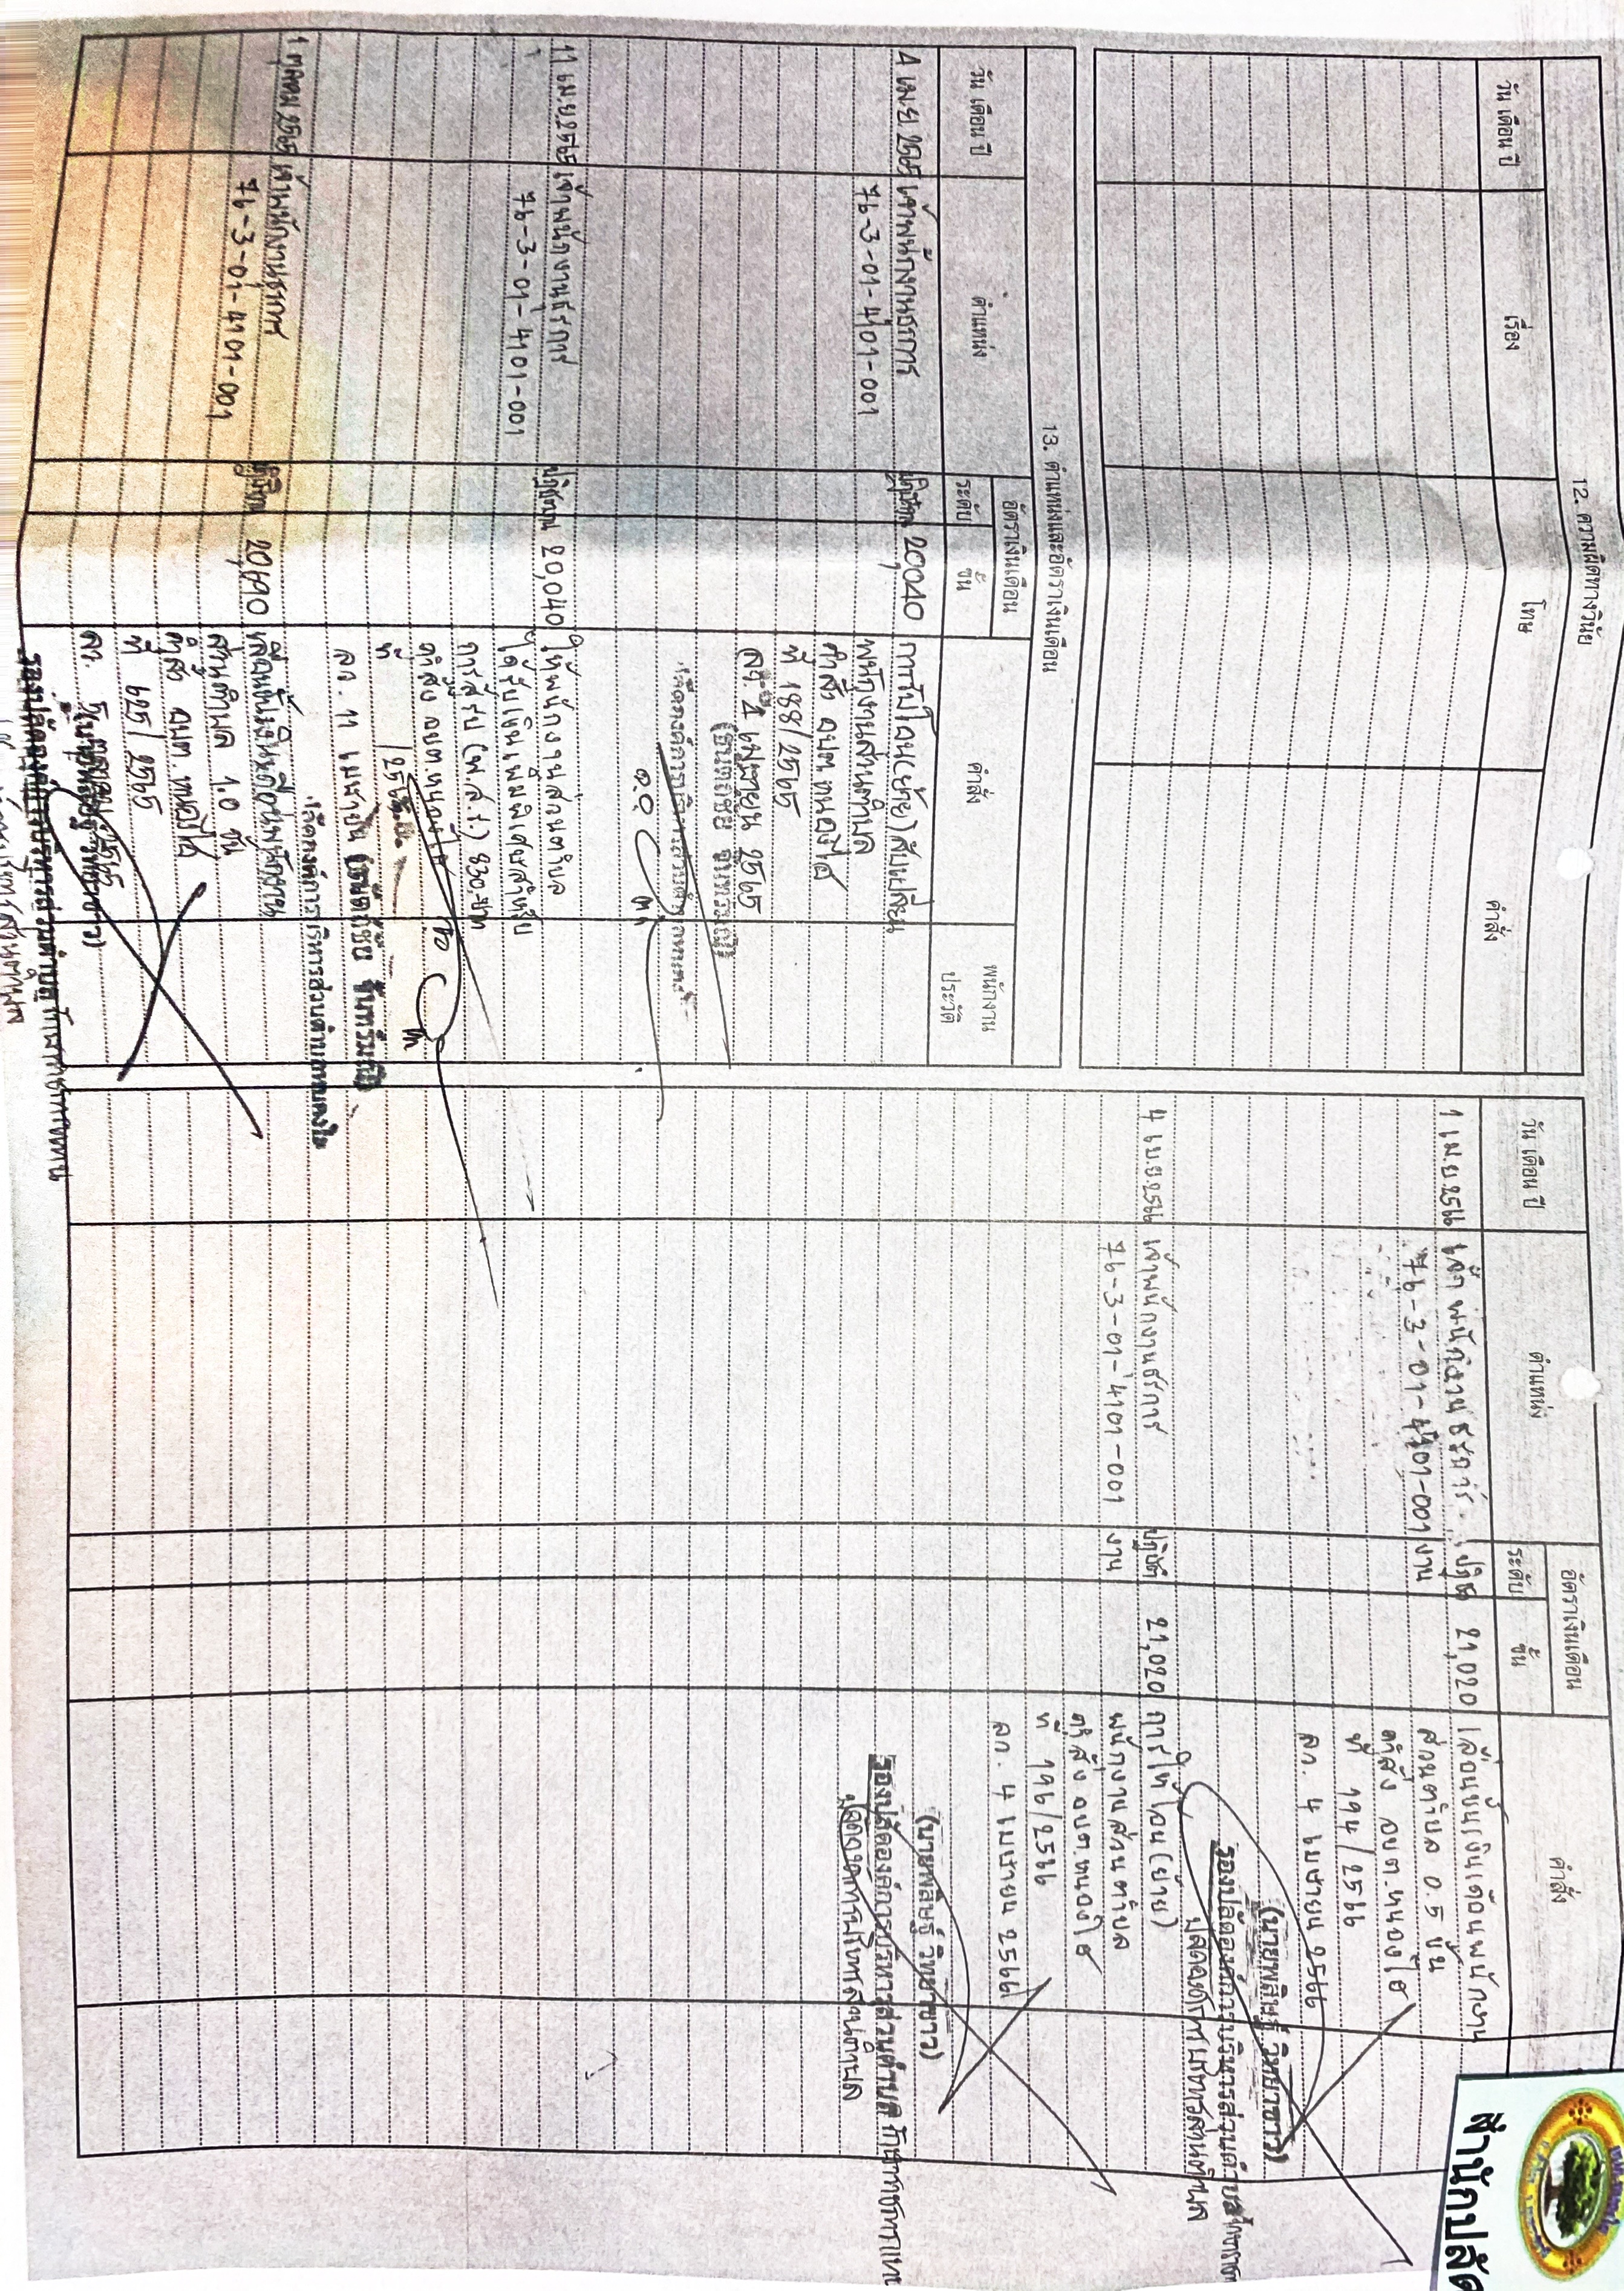 12. ความผิดทางวินัย
วัน เดือน ปี
เรื่อง
โทษ
คำสั่ง
13. ตำแหน่งและอัตราเงินเดือน
วัน เดือน ปี
ตำแหน่ง
อัตราเงินเดือน
ระดับ
ขั้น
คำสั่ง
พนักงาน
ประวัติ
4 เม.ย. 2565 เจ้าพนักงานธุรการ 20040 การรับโอน(ย้าย)สับเปลี่ยน
76-3-01-4101-001 พนักงานส่วนตำบล
คำสั่ง อบต.หนองไฮ
ที่ 188/2565
ลว. 4 เมษายน 2565
11 เม.ย. 2565 เจ้าพนักงานธุรการ 20,040 ให้พนักงานส่วนตำบล
76-3-01-4101-001 ได้รับเงินเพิ่มพิเศษสำหรับ
การสู้รบ (พ.ส.ร.) 830.-บาท
คำสั่ง อบต.หนองไฮ
ลว. 11 เมษายน
1 ตุลาคม 2565 เจ้าพนักงานธุรการ เลื่อนขั้นเงินเดือนพนักงาน
76-3-01-4101-001 ส่วนตำบล 1.0 ขั้น
คำสั่ง อบต.หนองไฮ
ที่ 625/2565
รองปลัดองค์การบริหารส่วนตำบล รักษาราชการแทน
วัน เดือน ปี
ตำแหน่ง
อัตราเงินเดือน
ระดับ
ขั้น
คำสั่ง
1 เม.ย. 2566 เจ้าพนักงานธุรการ ปฏิบัติ 21,020 เลื่อนขั้นเงินเดือนพนักงาน
76-3-01-4101-001 งาน ส่วนตำบล 0.5 ขั้น
คำสั่ง อบต.หนองไฮ
ที่ 194/2566
ลว. 4 เมษายน 2566
รองปลัดองค์การบริหารส่วนตำบล
ปลัดองค์การบริหารส่วนตำบล
4 เม.ย. 2566 เจ้าพนักงานธุรการ ปฏิบัติ 21,020 การให้โอน (ย้าย)
76-3-01-4101-001 งาน พนักงานส่วนตำบล
คำสั่ง อบต.หนองไฮ
ที่ 196/2566
ลว. 4 เมษายน 2566
รองปลัดองค์การบริหารส่วนตำบล รักษาราชการแทน
ปลัดองค์การบริหารส่วนตำบล
สำนักปลัด